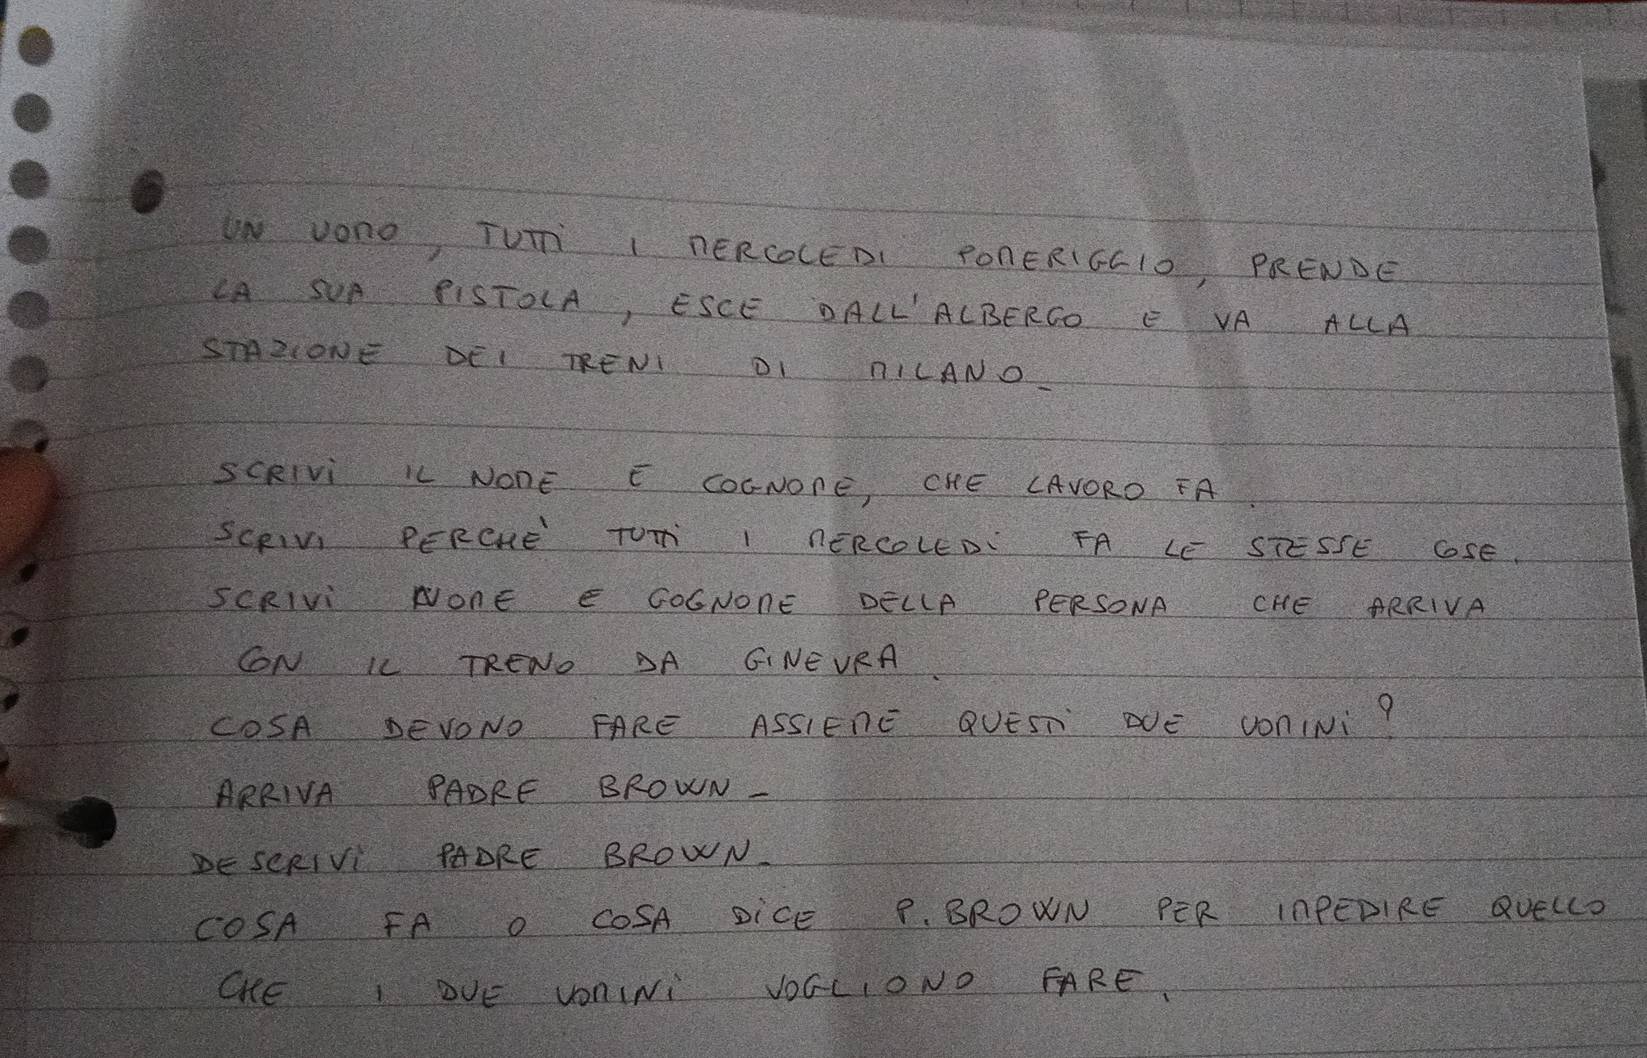 UN UOMO, TUTTI I MERCOLEDI POMERIGGIO, PRENDE
LA SUA PISTOLA, ESCE DALL'ALBERGO E VA ALLA
STAZIONE DEI TRENI DI MILANO_
SCRIVI IL NOME E COGNOME, CHE LAVORO FA.
SCRIVI PERCHÈ TUTTI I MERCOLEDÌ FA LE STESSE COSE.
SCRIVI NOME E COGNOME DELLA PERSONA CHE ARRIVA
CON IL TRENO DA GINEVRA.
COSA DEVONO FARE ASSIEME QUESTI DUE UOMINI?
ARRIVA PADRE BROWN_
DESCRIVI PADRE BROWN_
COSA FA O COSA DICE P. BROWN PER IMPEDIRE QUELLO
CHE I DUE UOMINI VOGLIONO FARE.